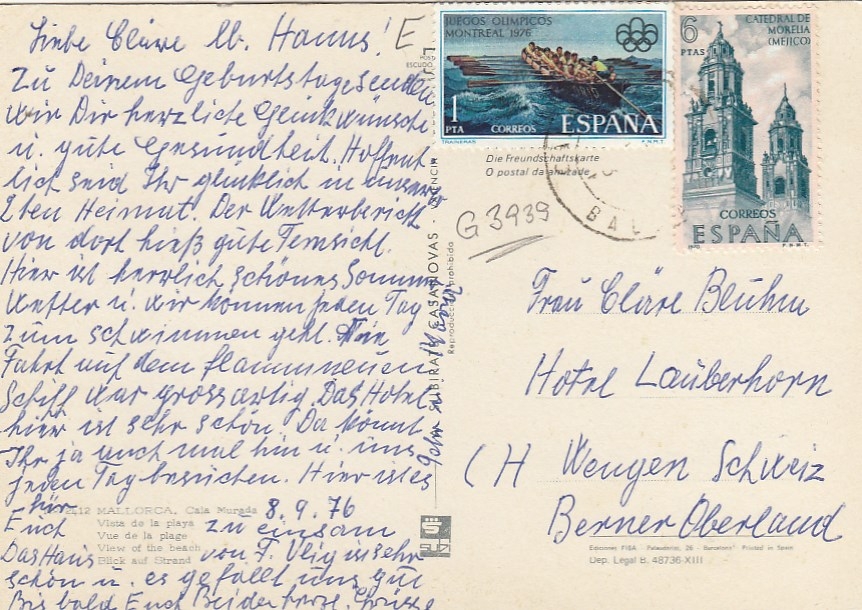 Liebe Cläre lb. Hanns! E
Zu Deinem Geburtstage senden
wir Dir herzliche Glückwünsche
u. gute Gesundheit. Hoffent
lich seid Ihr glücklich in eurer
2ten Heimat. Der Wetterbericht
von dort hieß gute Fernsicht.
Hier ist herrlich schönes Sommer
Wetter u. wir können jeden Tag
zum schwimmen gehl. Die
Fahrt auf dem flammneuen
Schiff war grossartig. Das Hotel
hier ist sehr schön. Da könnt
Ihr ja auch mal hin u. uns
jeden Tag besuchen. Hier ist es
für
Euch zu einsam
Das Haus von F. ist sehr
schön u. es gefällt uns gut
Bis bald Euch Beiden herzl. Grüsse
8.9.76
2412 MALLORCA. Cala Murada
Vista de la playa
Vue de la plage
View of the beach
Blick auf Strand
SUBIRATS CASANOVAS - VALENCIA
Reproducción prohibida
SUBI
JUEGOS OLIMPICOS
MONTREAL 1976
1
PTA CORREOS ESPAÑA
TRAINERAS F.N.M.T.
6
PTAS
CATEDRAL DE
MORELIA
(MEJICO)
CORREOS
ESPAÑA
F.N.M.T.
BAL
Die Freundschaftskarte
O postal da amizade
G 3939
Frau Cläre Blühm
Hotel Lauberhorn
CH Wengen Schweiz
Berner Oberland
Ediciones FISA - Palaudarias, 26 - Barcelona Printed in Spain
Dep. Legal B. 48736-XIII